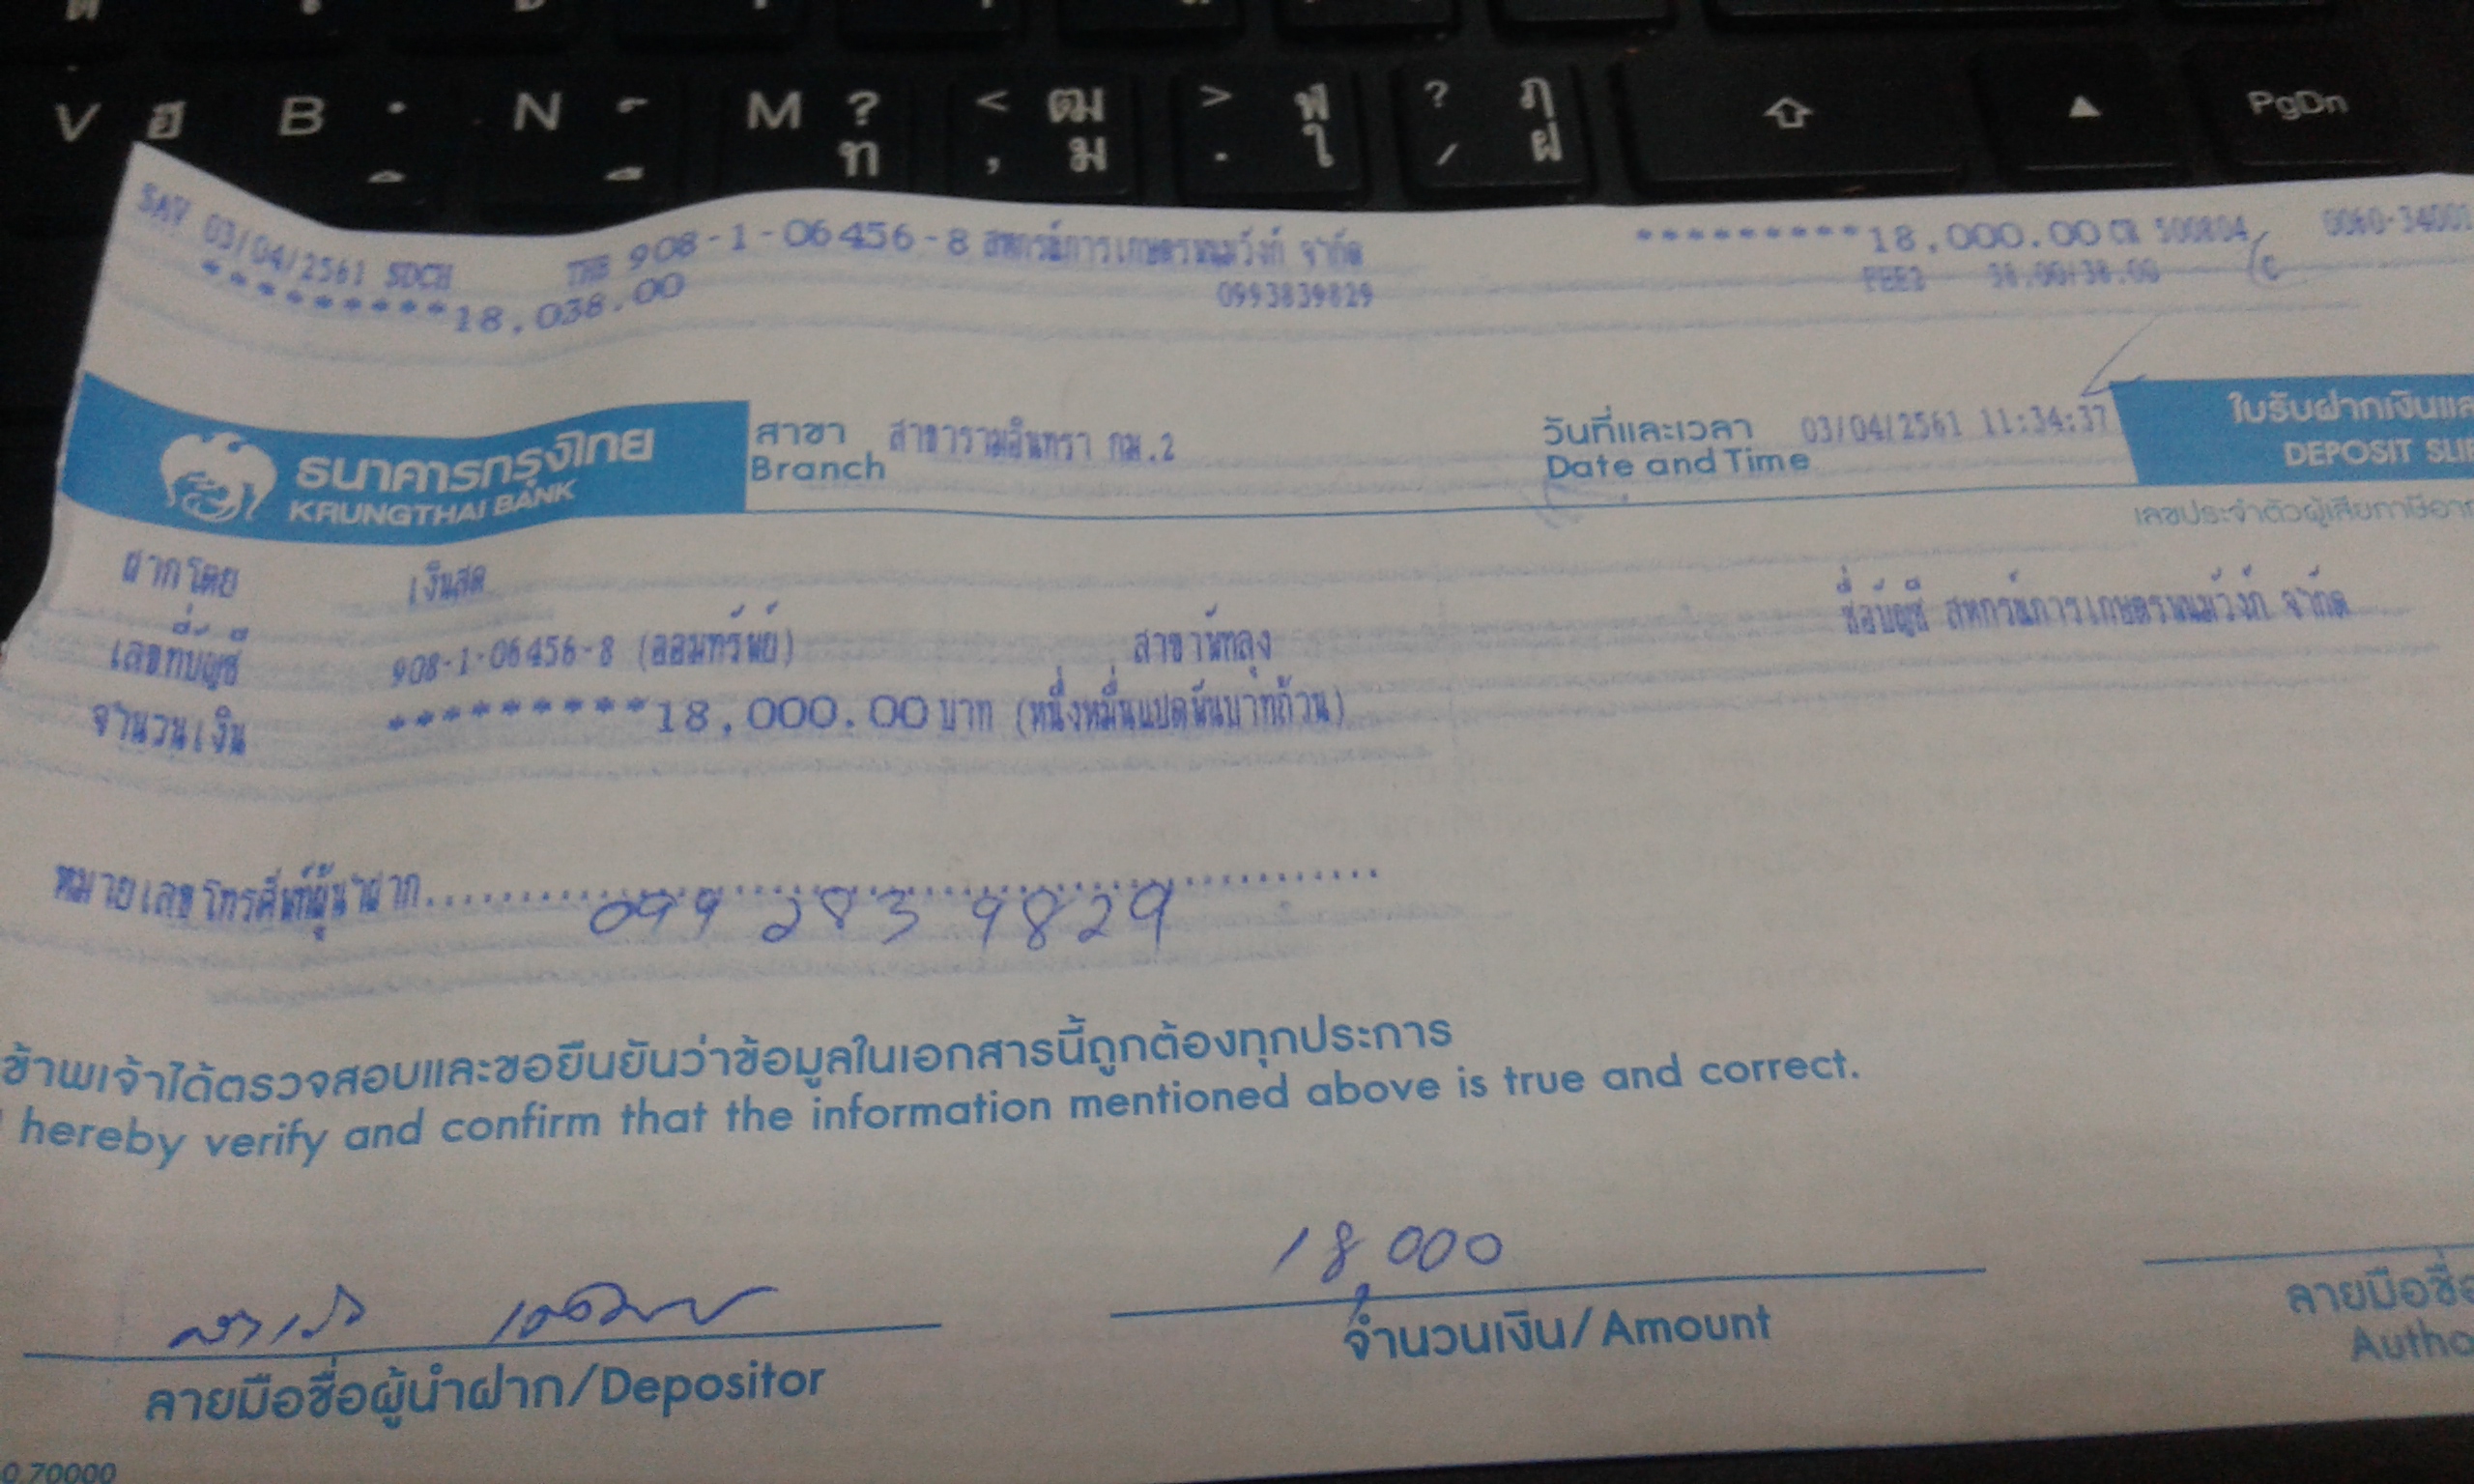 V ฮ B N M ? ท < ฒ , ม > ฬ . ใ ? ฦ / ฝ ⇧ ▲ PgDn
SAV 03/04/2561 SDCH THB 908-1-06456-8 สหกรณ์การเกษตรพนมวังก์ จำกัด *********18,000.00 CR 500804 0060-34001
*********18,038.00 0993839829 FEE2 38.00/38.00
ธนาคารกรุงไทย
KRUNGTHAI BANK
สาขา สาขารามอินทรา กม.2
Branch
วันที่และเวลา 03/04/2561 11:34:37
Date and Time
ใบรับฝากเงินแล
DEPOSIT SLI
เลขประจำตัวผู้เสียภาษีอา
ฝากโดย เงินสด
เลขที่บัญชี 908-1-06456-8 (ออมทรัพย์) สาขาพัทลุง ชื่อบัญชี สหกรณ์การเกษตรพนมวังก์ จำกัด
จำนวนเงิน *********18,000.00 บาท (หนึ่งหมื่นแปดพันบาทถ้วน)
หมายเลขโทรศัพท์ผู้นำฝาก..............................
099 283 9829
ข้าพเจ้าได้ตรวจสอบและขอยืนยันว่าข้อมูลในเอกสารนี้ถูกต้องทุกประการ
hereby verify and confirm that the information mentioned above is true and correct.
18,000
ลายมือชื่อผู้นำฝาก/Depositor
จำนวนเงิน/Amount
ลายมือชื่อ
Autho
0.70000